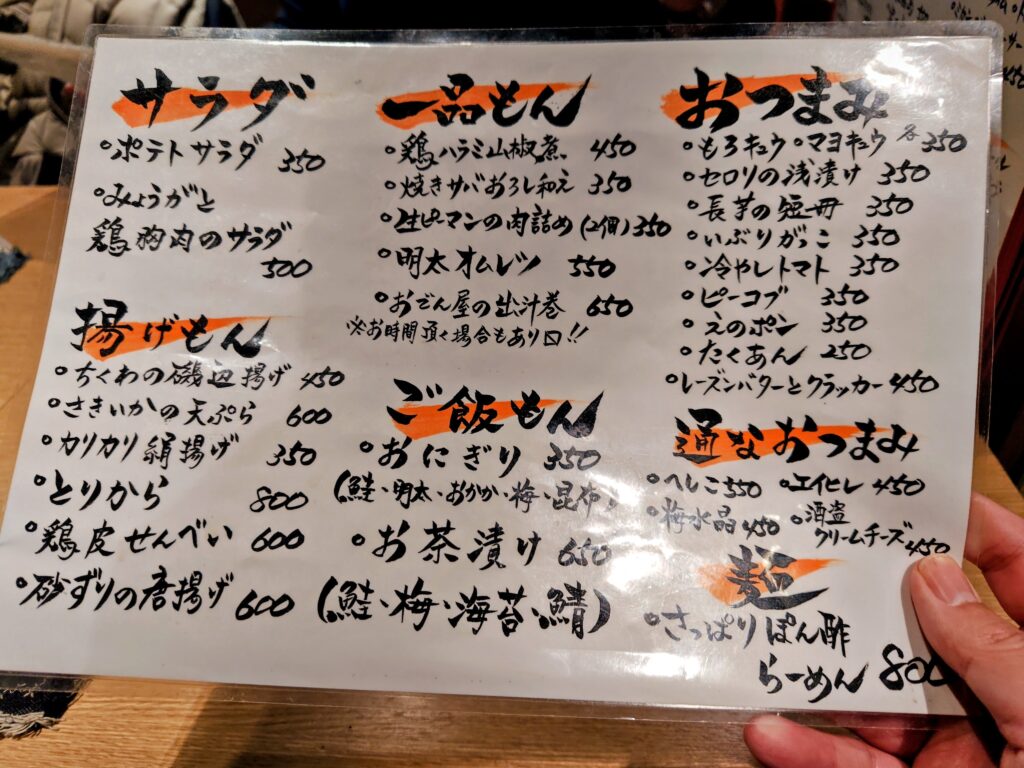 サラダ
・ポテトサラダ 350
・みょうがと
鶏胸肉のサラダ
500
揚げもん
・ちくわの磯辺揚げ 450
・さきいかの天ぷら 600
・カリカリ絹揚げ 350
・とりから 800
・鶏皮せんべい 600
・砂ずりの唐揚げ 600
一品もん
・鶏ハラミ山椒煮 450
・焼きサバおろし和え 350
・生ピーマンの肉詰め(2個)350
・明太オムレツ 550
・おでん屋の出汁巻 650
※お時間頂く場合もあり〼!!
ご飯もん
・おにぎり 350
(鮭・明太・おかか・梅・昆布)
・お茶漬け 650
(鮭・梅・海苔・鯖)
おつまみ
・もろキュウ ・マヨキュウ 各350
・セロリの浅漬け 350
・長芋の短冊 350
・いぶりがっこ 350
・冷やしトマト 350
・ピーコブ 350
・えのポン 350
・たくあん 250
・レーズンバターとクラッカー 450
通なおつまみ
・へしこ 550 ・エイヒレ 450
・梅水晶 450 ・酒盗
クリームチーズ 450
麺
・さっぱりぽん酢
らーめん 800